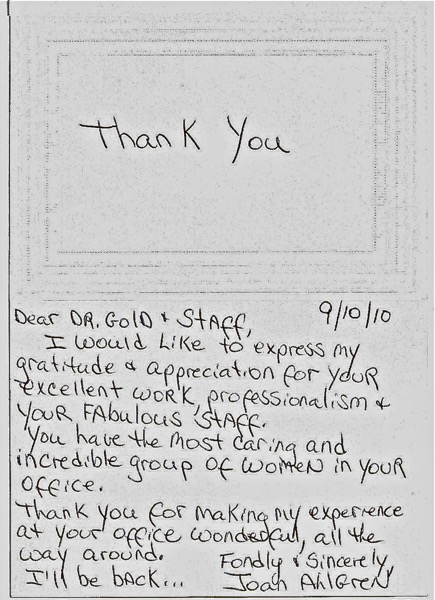 Thank You
9/10/10
Dear DR. Gold & Staff,
I would like to express my
gratitude & appreciation for your
excellent work, professionalism &
your fabulous staff.
You have the most caring and
incredible group of women in your
office.
Thank you for making my experence
at your office wonderful, all the
way around.
Fondly & Sincerely,
I'll be back...
Joan Ahlgren